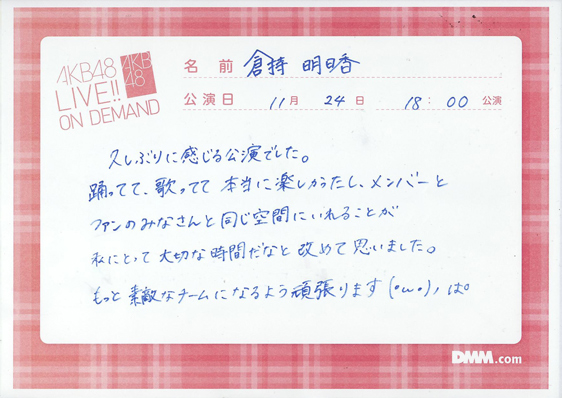 AKB48
LIVE!!
ON DEMAND
AKB
48
名 前 倉持 明日香
公演日 11月 24日 18:00公演
久しぶりに感じる公演でした。
踊ってて、歌ってて 本当に楽しかったし、メンバーと
ファンのみなさんと同じ空間にいれることが
私にとって 大切な時間だなと 改めて思いました。
もっと 素敵なチームになるよう頑張ります(・ω・)ノは。
DMM.com